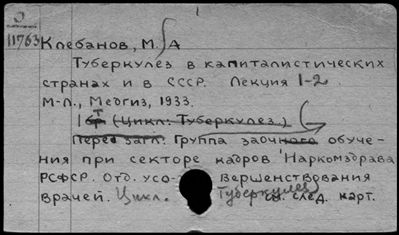 О
11763 Клебанов, М. А
Туберкулез в капиталистических
странах и в СССР. Лекция 1-2
М-Л., Медгиз, 1933.
(Цикл: Туберкулез.)
Перед загл: Группа заочного обуче-
ния при секторе кадров Наркомздрава
РСФСР. Отд. усо- вершенствования
врачей. Цикл. Туберкулез См. след. карт.